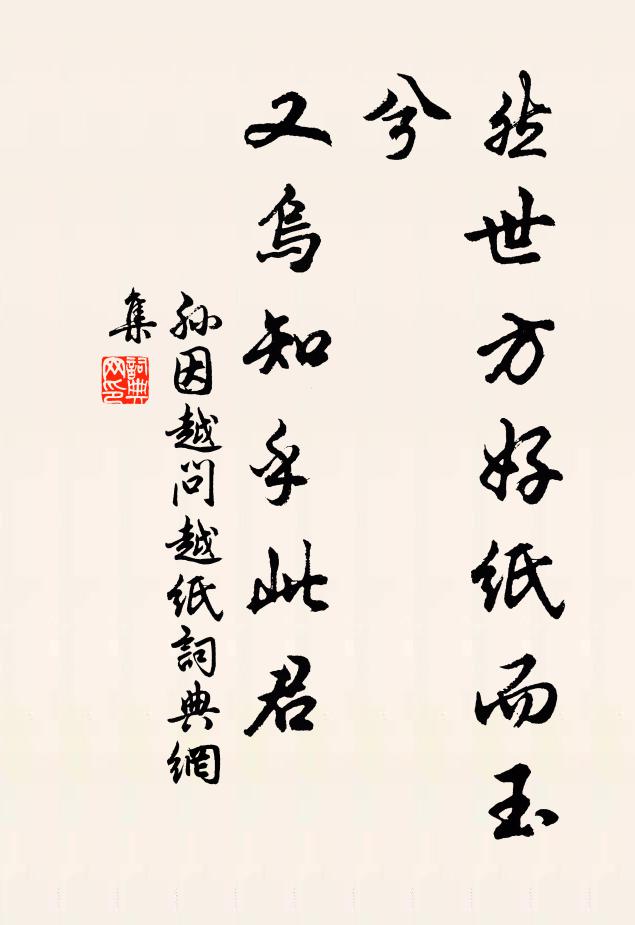 然世方好纸而玉
兮
又烏知乎此君
孙因越問越纸詞典網
集
詞典
网印